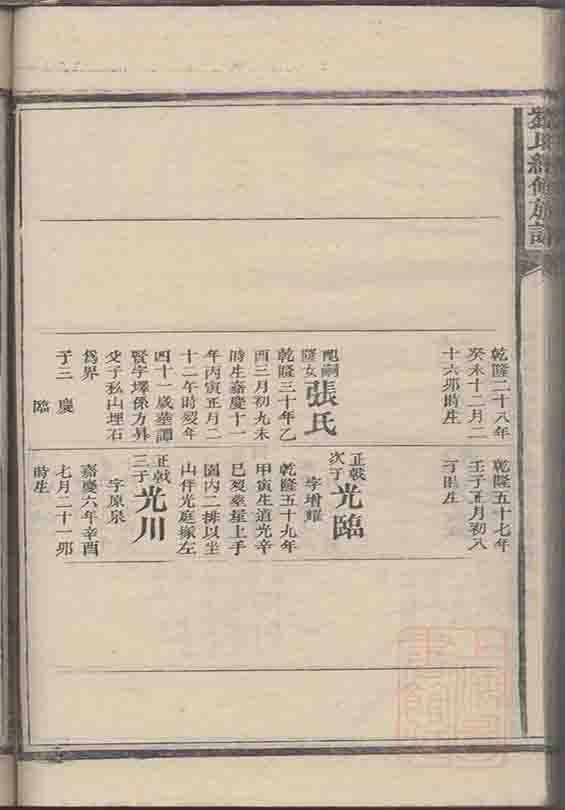 氏續修族譜
乾隆二十八年
癸未十二月二
十六卯時生
配嗣
隆女
張氏
乾隆三十年乙
酉三月初九未
時生嘉慶十一
年丙寅正月二
十二午時歿年
四十一歲葬譚
賢字墿係力昇
父子私山埋石
為界
子三 慶
臨
乾隆五十七年
壬子正月初八
生
正戟
次子
光臨
字增耀
乾隆五十九年
甲寅生道光辛
巳歿葬屋上手
園內二排以坐
山作光庭塚左
正戟
三子
光川
字原泉
嘉慶六年辛酉
七月二十一卯
時生